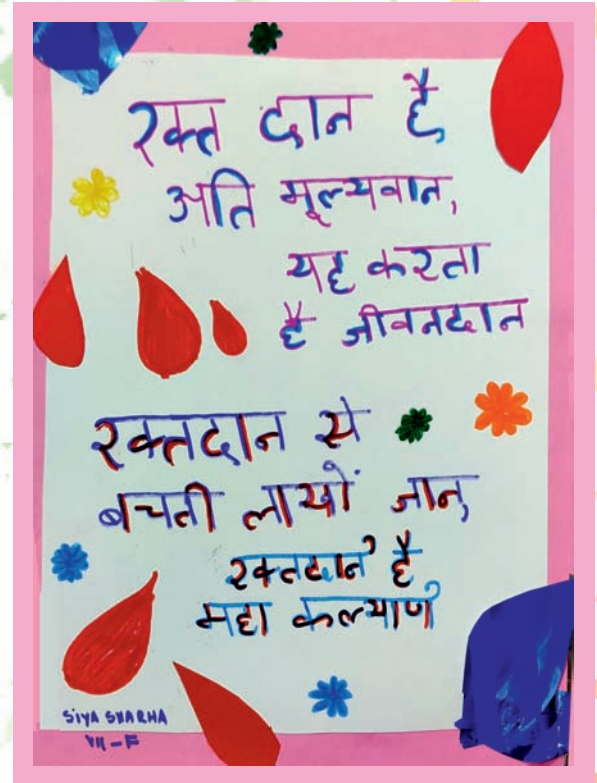 रक्त दान है
अति मूल्यवान,
यह करता
है जीवनदान
रक्तदान से
बचती लाखों जान,
रक्तदान है
महा कल्याण
SIYA SHARMA
VII-F